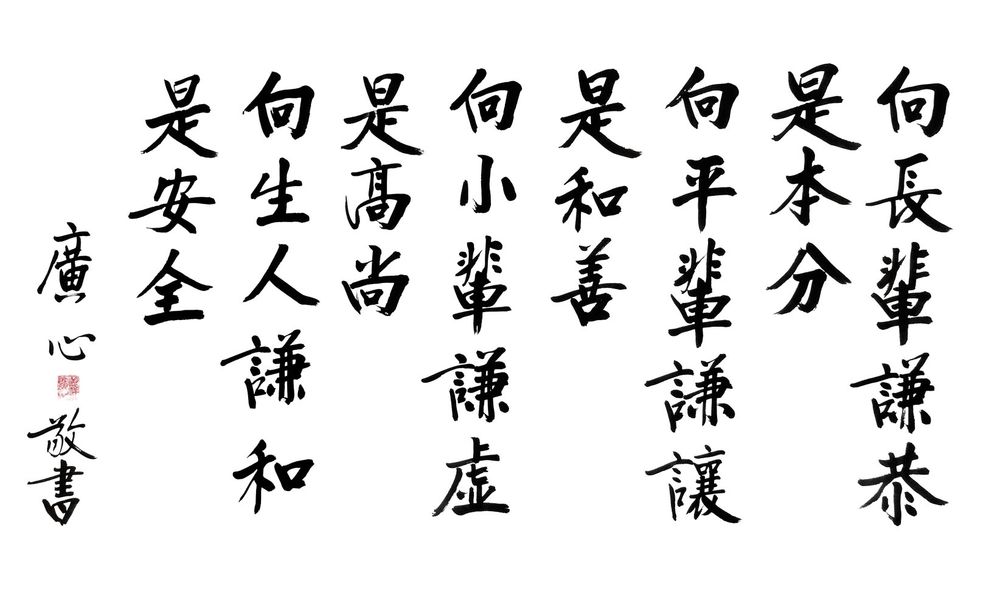 向長輩謙恭
是本分
向平輩謙讓
是和善
向小輩謙虛
是高尚
向生人謙和
是安全
廣心
敬書